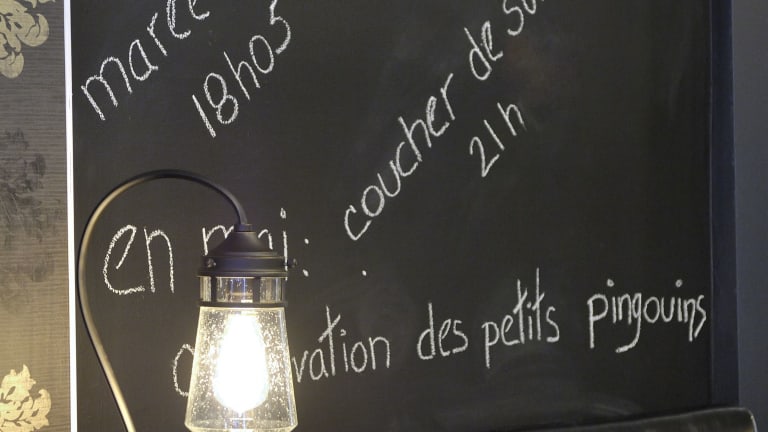 marée
18h05
coucher de so
21h
en mai :
vation des petits pingouins